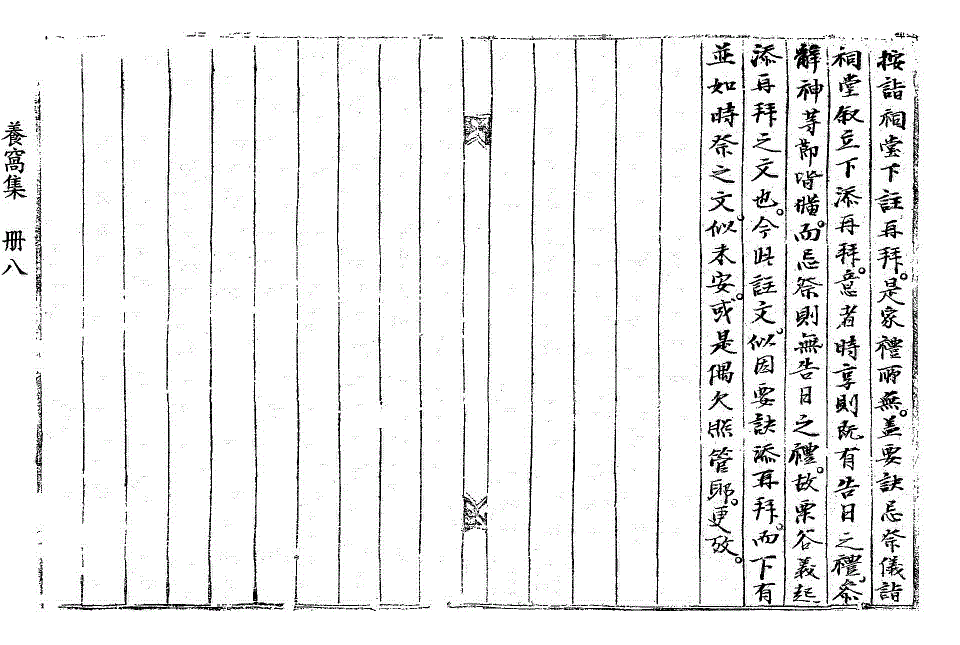 按詣祠堂下註再拜。是家禮所無。盖要訣忌祭儀詣
祠堂叙立下添再拜。意者時享則旣有告日之禮。參
辭神等節皆備。而忌祭則無告日之禮。故栗谷義起
添再拜之文也。今此註文。似因要訣添再拜。而下有
並如時祭之文。似未安。或是偶欠照管耶。更攷。
養窩集 冊八